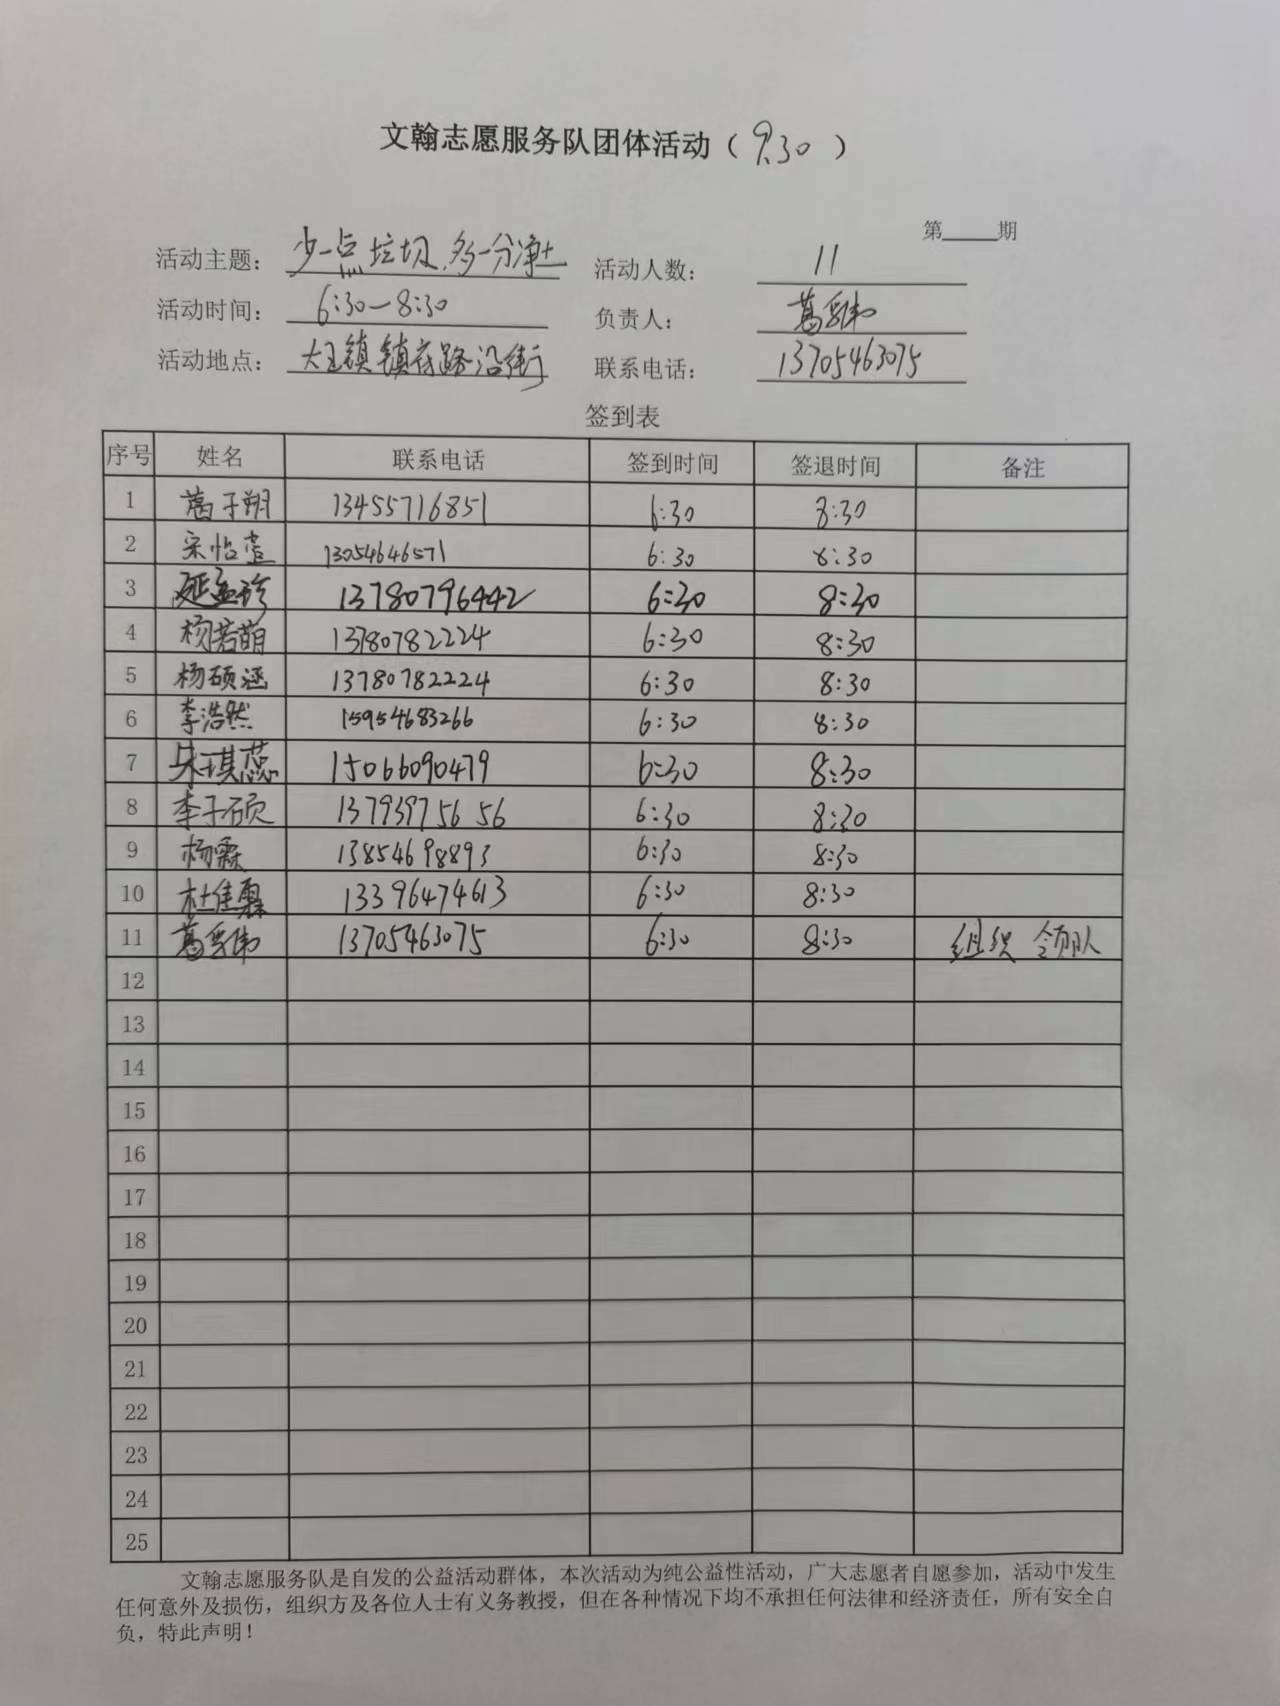 文翰志愿服务队团体活动（9.30）
第____期
活动主题：少一点垃圾,多一分净土 活动人数：11
活动时间：6:30—8:30 负责人：葛
活动地点：大王镇镇府路沿街 联系电话：13705463075
签到表
序号 姓名 联系电话 签到时间 签退时间 备注
1 葛子朔 13455716851 6:30 8:30
2 宋怡萱 13054646571 6:30 8:30
3 延孟珍 13780796442 6:30 8:30
4 杨若萌 13780782224 6:30 8:30
5 杨硕涵 13780782224 6:30 8:30
6 李浩然 15954683266 6:30 8:30
7 朱琪蕊 15066090479 6:30 8:30
8 李子硕 13793975656 6:30 8:30
9 杨霖 13854698893 6:30 8:30
10 杜佳霖 13396474613 6:30 8:30
11 葛 13705463075 6:30 8:30 组织 领队
12
13
14
15
16
17
18
19
20
21
22
23
24
25
文翰志愿服务队是自发的公益活动群体，本次活动为纯公益性活动，广大志愿者自愿参加，活动中发生
任何意外及损伤，组织方及各位人士有义务教授，但在各种情况下均不承担任何法律和经济责任，所有安全自
负，特此声明！